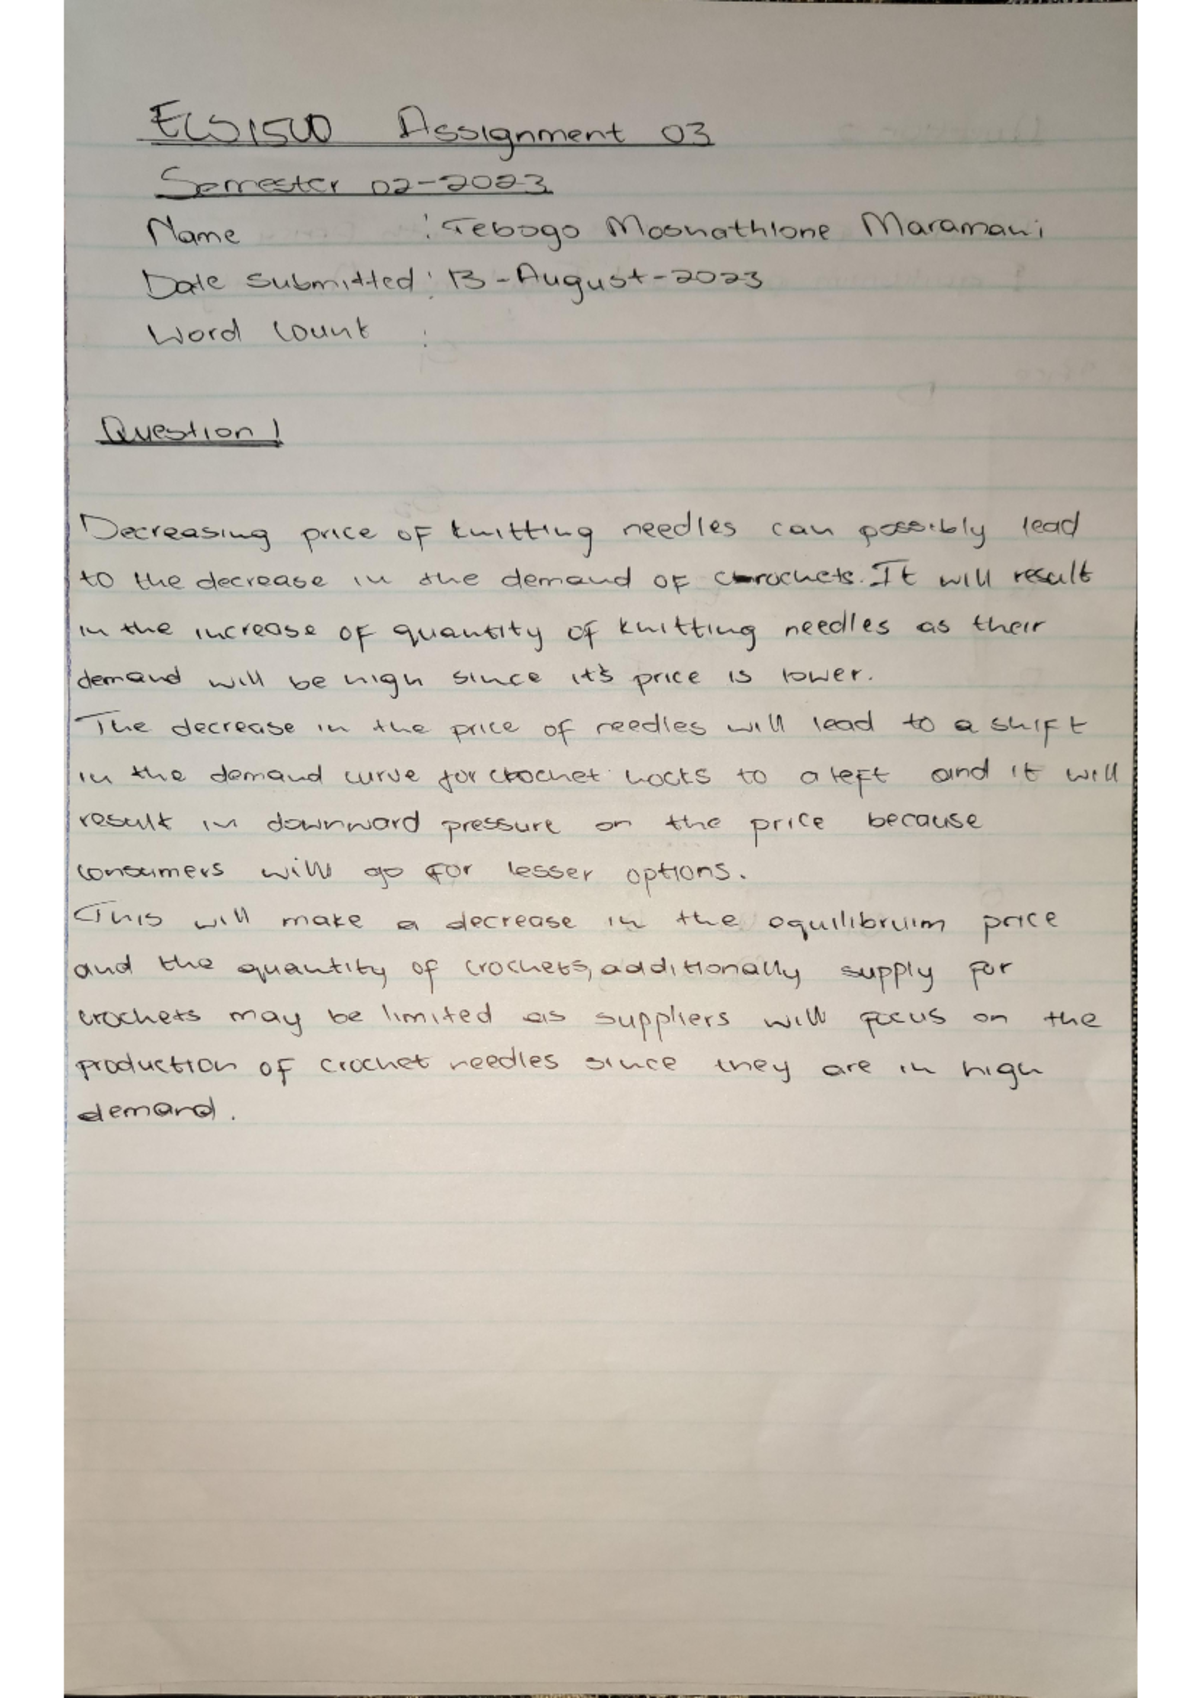 ECS1500 Assignment 03
Semester 02-2023
Name : Tebogo Moshathlone Maramani
Date Submitted : 13-August-2023
Word Count :
Question 1
Decreasing price of knitting needles can possibly lead
to the decrease in the demand of crochets. It will result
in the increase of quantity of knitting needles as their
demand will be high since it's price is lower.
The decrease in the price of needles will lead to a shift
in the demand curve for crochet hocks to a left and it will
result in downward pressure on the price because
consumers will go for lesser options.
This will make a decrease in the equilibruim price
and the quantity of crochets, additionally supply for
crochets may be limited as suppliers will focus on the
production of crochet needles since they are in high
demand.